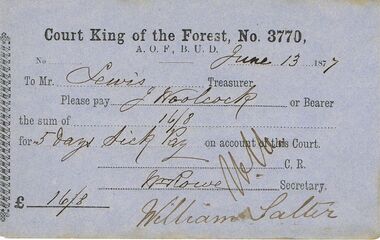 Court King of the Forest, No. 3770,
A. O. F., B. U. D.
No June 13 1877
To Mr. Lewis Treasurer.
Please pay J Woolcock or Bearer
the sum of 16/8
for 5 days Sick Pay on account of this Court.
C. R.
Wm Rowe Secretary.
£ 16/8
William Salter